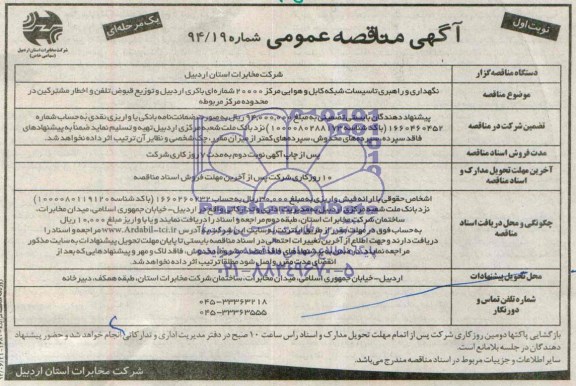 نوبت اول
آگهی مناقصه عمومی شماره ۹۴/۱۹
یک مرحله‌ای
شرکت مخابرات استان اردبیل
(سهامی خاص)
دستگاه مناقصه گزار
شرکت مخابرات استان اردبیل
موضوع مناقصه
نگهداری و راهبری تاسیسات شبکه کابل و هوایی مرکز ۲۰۰۰۰ شماره ای باکری اردبیل و توزیع قبوض تلفن و اخطار مشترکین در
محدوده مرکز مربوطه
تضمین شرکت در مناقصه
پیشنهاد دهندگان بایستی تضمینی به مبلغ ۹۴،۰۰۰،۰۰۰ ریال بصورت ضمانت‌نامه بانکی یا واریز نقدی به حساب شماره
۱۶۶۰۴۶۰۴۵۲ (باکد شناسه ۱۰۰۰۰۸۰۲۸۸۱۷۳) نزد بانک ملت شعبه مرکزی اردبیل تهیه و تسلیم نماید ضمناً به پیشنهادهای
فاقد سپرده، سپرده‌های مخدوش، سپرده‌های کمتر از میزان مقرر، چک شخصی و نظایر آن ترتیب اثر داده نخواهد شد.
مدت فروش اسناد مناقصه
پس از چاپ آگهی نوبت دوم به مدت ۷ روز کاری شرکت
آخرین مهلت تحویل مدارک و
اسناد مناقصه
۱۰ روز کاری شرکت پس از آخرین مهلت فروش اسناد مناقصه
چگونگی و محل دریافت اسناد
مناقصه
اشخاص حقوقی با ارائه فیش واریزی به مبلغ ۳۰۰،۰۰۰ ریال به حساب ۱۶۶۰۴۶۰۴۳۲ (باکد شناسه ۱۰۰۰۰۸۰۱۱۹۱۲۰)
نزد بانک ملت شعبه مرکزی اردبیل به اردبیل- خیابان جمهوری اسلامی، میدان مخابرات،
ساختمان شرکت مخابرات استان، طبقه دوم مراجعه و اسناد را دریافت نمایند و یا با واریز مبلغ ۱۰،۰۰۰ ریال
به حساب فوق در مهلت مقرر از طریق اینترنت به سایت این شرکت به آدرس www.Ardabil-tci.ir مراجعه و اسناد را
دریافت دارند و جهت اطلاع از آخرین تغییرات احتمالی در اسناد مناقصه بایستی تا پایان مهلت تحویل پیشنهادات به سایت مذکور
مراجعه نمایند. مخدوش، فاقد لاک و مهر و پیشنهادهایی که بعد از
انقضای مدت مقرر واصل شود مطلقاً ترتیب اثر داده نخواهد شد.
محل تحویل پیشنهادات
اردبیل- خیابان جمهوری اسلامی، میدان مخابرات، ساختمان شرکت مخابرات استان، طبقه همکف، دبیرخانه
شماره تلفن تماس و
دورنگار
۰۴۵-۳۳۳۶۳۲۱۸
۰۴۵-۳۳۳۶۳۵۵۵
بازگشایی پاکتها دومین روز کاری شرکت پس از اتمام مهلت تحویل مدارک و اسناد راس ساعت ۱۰ صبح در دفتر مدیریت اداری و تدارکاتی انجام خواهد شد و حضور پیشنهاد
دهندگان در جلسه بلامانع است.
سایر اطلاعات و جزییات مربوط در اسناد مناقصه مندرج می‌باشد.
شرکت مخابرات استان اردبیل
۰۲۱-۸۸۳۴۹۶۷۰-۵